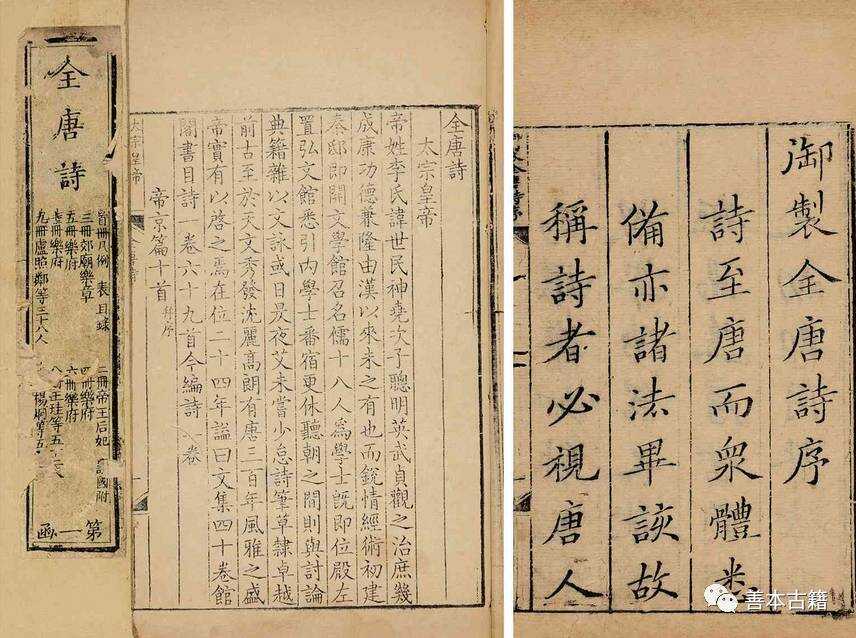 全唐詩
首冊凡例 表 目錄
二冊帝王后妃 國附
三冊郊廟樂章
四冊樂府
五冊樂府
六冊樂府
冊樂府
八 王珪等五
九冊盧照鄰等三十八人
楊炯等五
第一函
全唐詩
太宗皇帝
帝姓李氏諱世民神堯次子聰明英武貞觀之治庶幾
成康功德兼隆由漢以來未之有也而銳情經術初建
秦邸即開文學館召名儒十八人爲學士既即位殿左
置弘文館悉引內學士番宿更休聽朝之間則與討論
典籍雜以文詠或日昃夜艾未嘗少怠詩筆草隸卓越
前古至於天文秀發沈麗高朗有唐三百年風雅之盛
帝實有以啓之焉在位二十四年諡曰文集四十卷館
閣書目詩一卷六十九首今編詩一卷
帝京篇十首 并序
太宗皇帝
御製全唐詩序
詩至唐而衆體悉
備亦諸法畢該故
稱詩者必視唐人
善本古籍